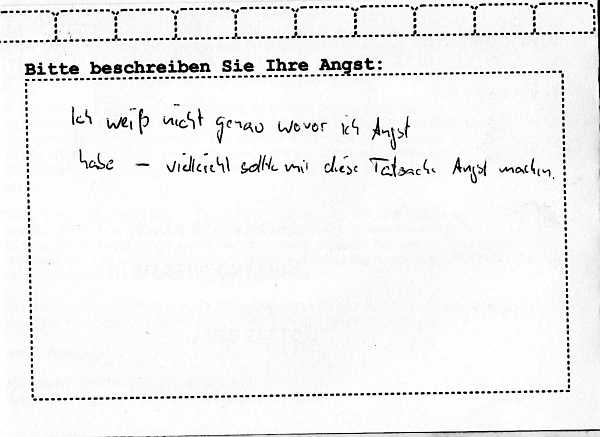 Bitte beschreiben Sie Ihre Angst:
Ich weiß nicht genau wovor ich Angst
habe – vielleicht sollte mir diese Tatsache Angst machen.